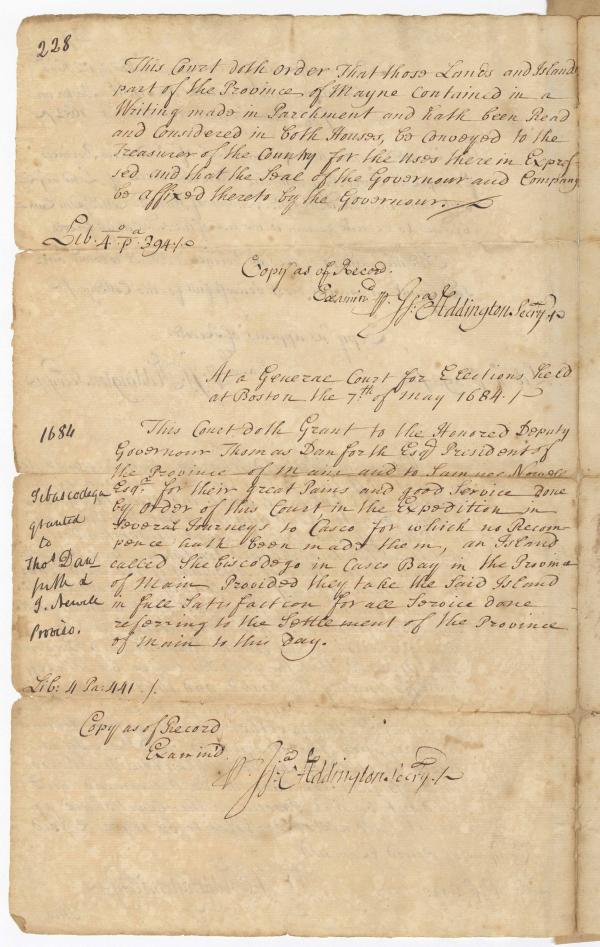 228
This Court doth order That those Lands and Islands
part of the Province of Mayne Contained in a
Writing made in Parchment and hath been Read
and Considered in both Houses, be conveyed to the
Treasurer of the Country for the Uses therein Expres-
sed and that the Seal of the Governour and Company
be affixed thereto by the Governour.
Lib. 4.o pa. 394
Copy as of Record.
Examind pr. Jsa. Addington Secry.
At a General Court for Elections held
at Boston the 7th. of may 1684.
1684
This Court doth Grant to the Honored Deputy
Governour Thomas Danforth Esqr. President of
the Province of Main and to Samuel Nowell
Esqr. for their great Pains and good Service done
by order of this Court in the Expedition in
several Journeys to Casco for which no Recom-
pence hath been made them, an Island
called Shebiscodego in Casco Bay in the Province
of Main Provided they take the Said Island
in full Satisfaction for all Service done
referring to the Settlement of the Province
of Main to this Day.
Sebascodega
granted
to
Thos. Dan
forth &
S. Newell
Proviso.
Lib: 4 Pa: 441
Copy as of Record
Examind.
pr. Jsa. Addington Secry.